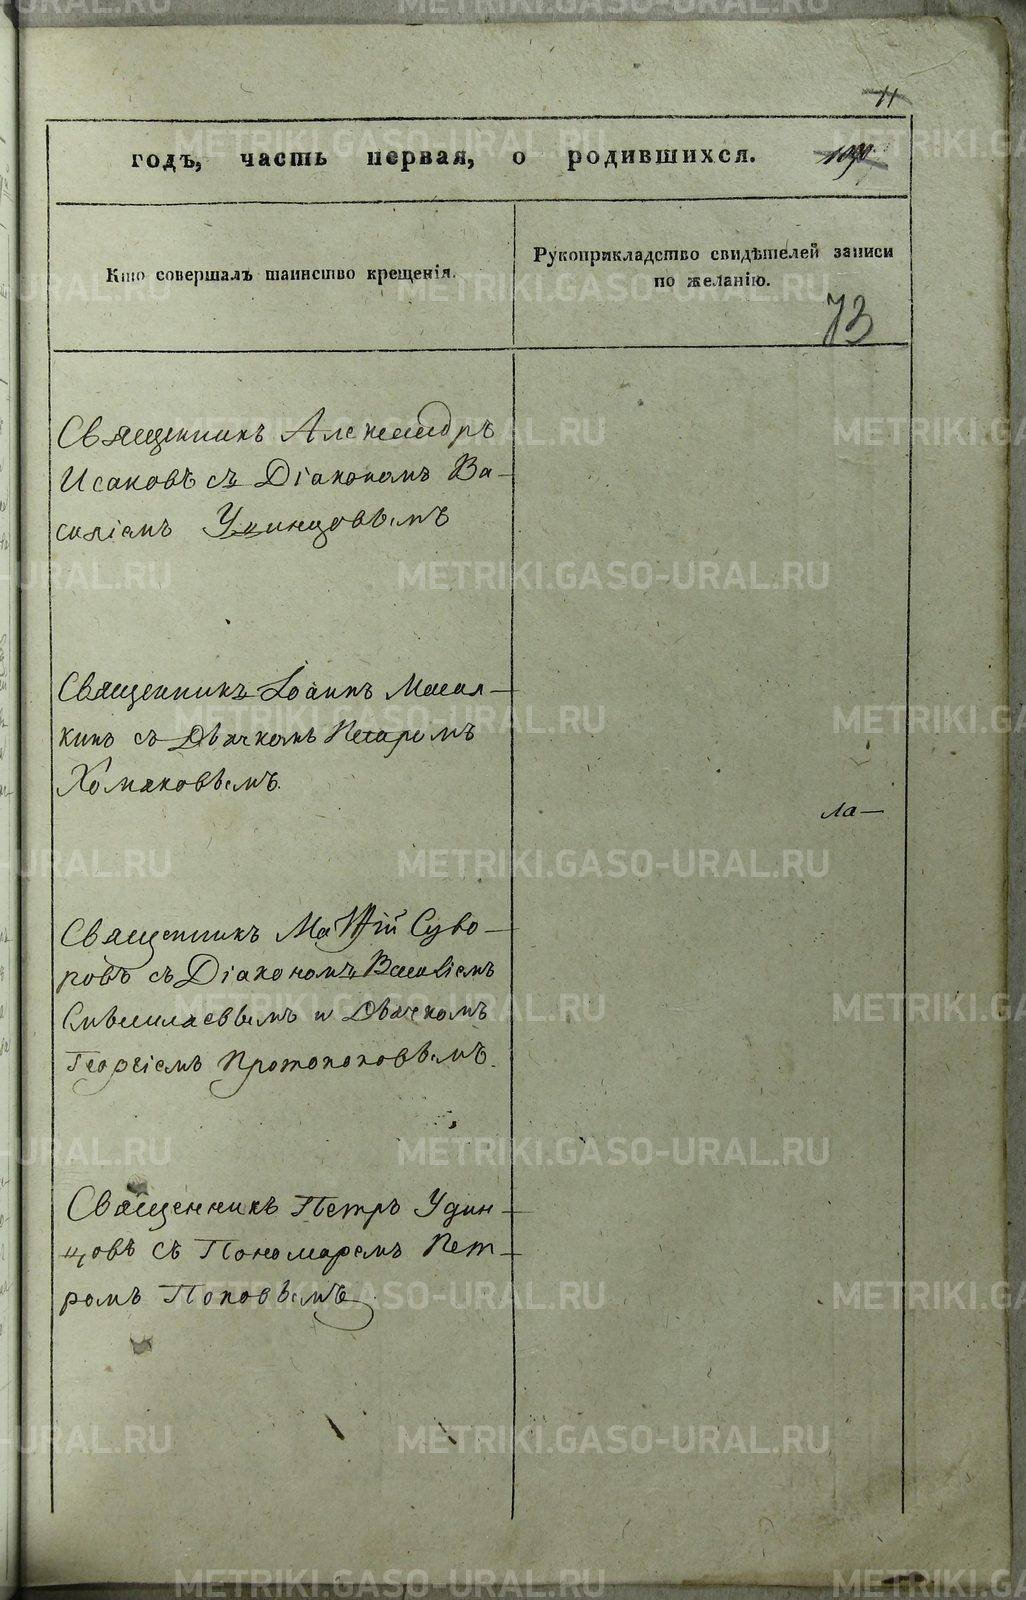 11
годъ, часть первая, о родившихся.
Кто совершалъ таинство крещенія.
Рукоприкладство свидѣтелей записи
по желанію.
73
Священникъ Александръ
Исаковъ съ Діакономъ Ва-
силіемъ Удинцовымъ
Священникъ Іоаннъ Масал-
кинъ съ Дьячкомъ Петромъ
Хомяковымъ.
ла-
Священникъ Матѳій Суво-
ровъ съ Діакономъ Василіемъ
и Дьячкомъ
Георгіемъ Протопоповымъ.
Священникъ Петръ Удин-
цовъ съ Пономаремъ Пет-
ромъ Поповымъ
METRIKI.GASO-URAL.RU